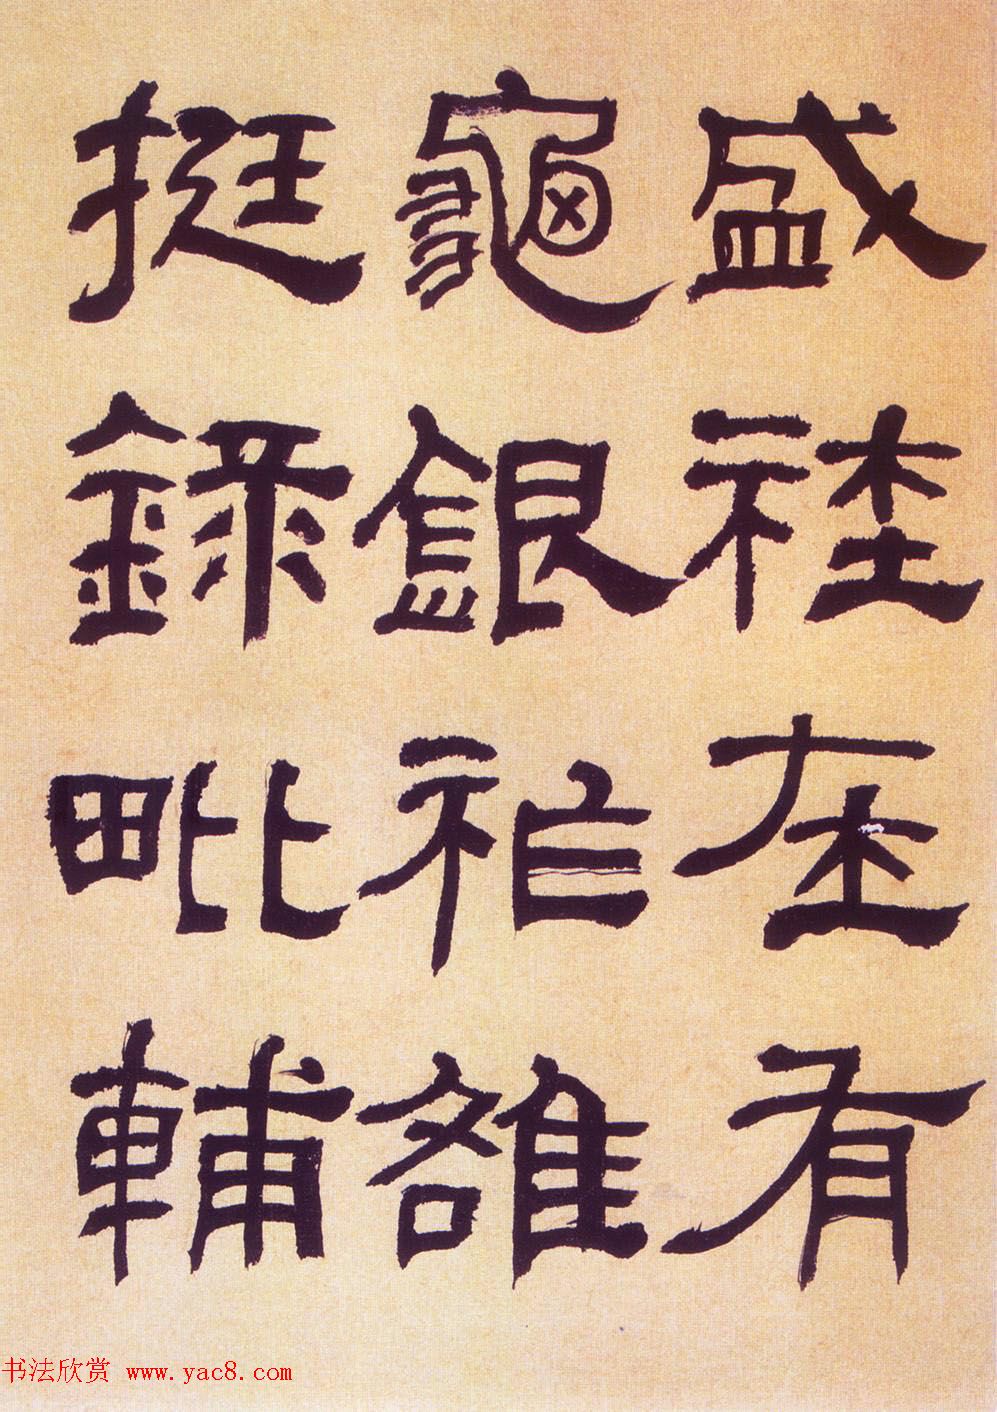 盛社在有
龜銀祚雒
挺錄毗輔
书法欣赏 www.yac8.com